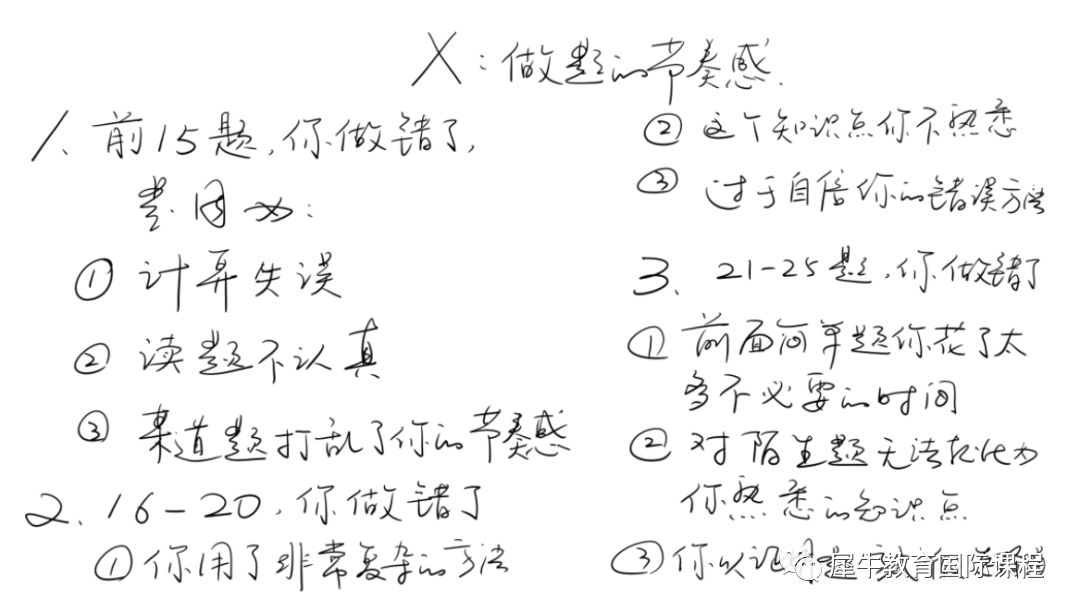 X：做题的节奏感.
1、前15题,你做错了,
是因为：
① 计算失误
② 读题不认真
③ 某道题打乱了你的节奏感
2、16-20,你做错了
① 你用了非常复杂的方法
② 这个知识点你不熟悉
③ 过于自信你的错误方法
3、21-25题,你做错了
① 前面简单题你花了太
多不必要的时间
② 对陌生题无法转化为
你熟悉的知识点
③ 你以
犀牛教育国际课程